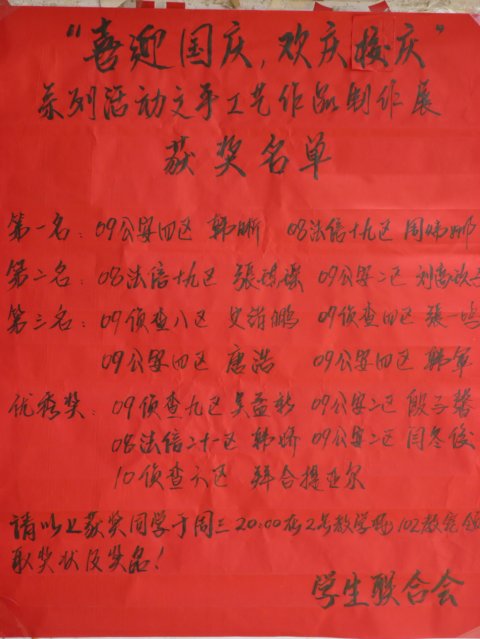 “喜迎国庆，欢庆校庆”
系列活动之手工艺作品制作展
获奖名单
第一名：09公安四区 韩晰 08法信十九区 周
第二名：08法信十九区 张 09公安二区 刘
第三名：09侦查八区 鹏 09侦查四区 张一鸣
09公安四区 唐浩 09公安四区 韩军
优秀奖：09侦查九区 吴益 09公安二区 殷子馨
08法信二十一区 韩娇 09公安二区 闫冬俊
10侦查六区 拜合提亚尔
请以上获奖同学于周三20:00在2号教学楼102教室领
取奖状及奖品！
学生联合会